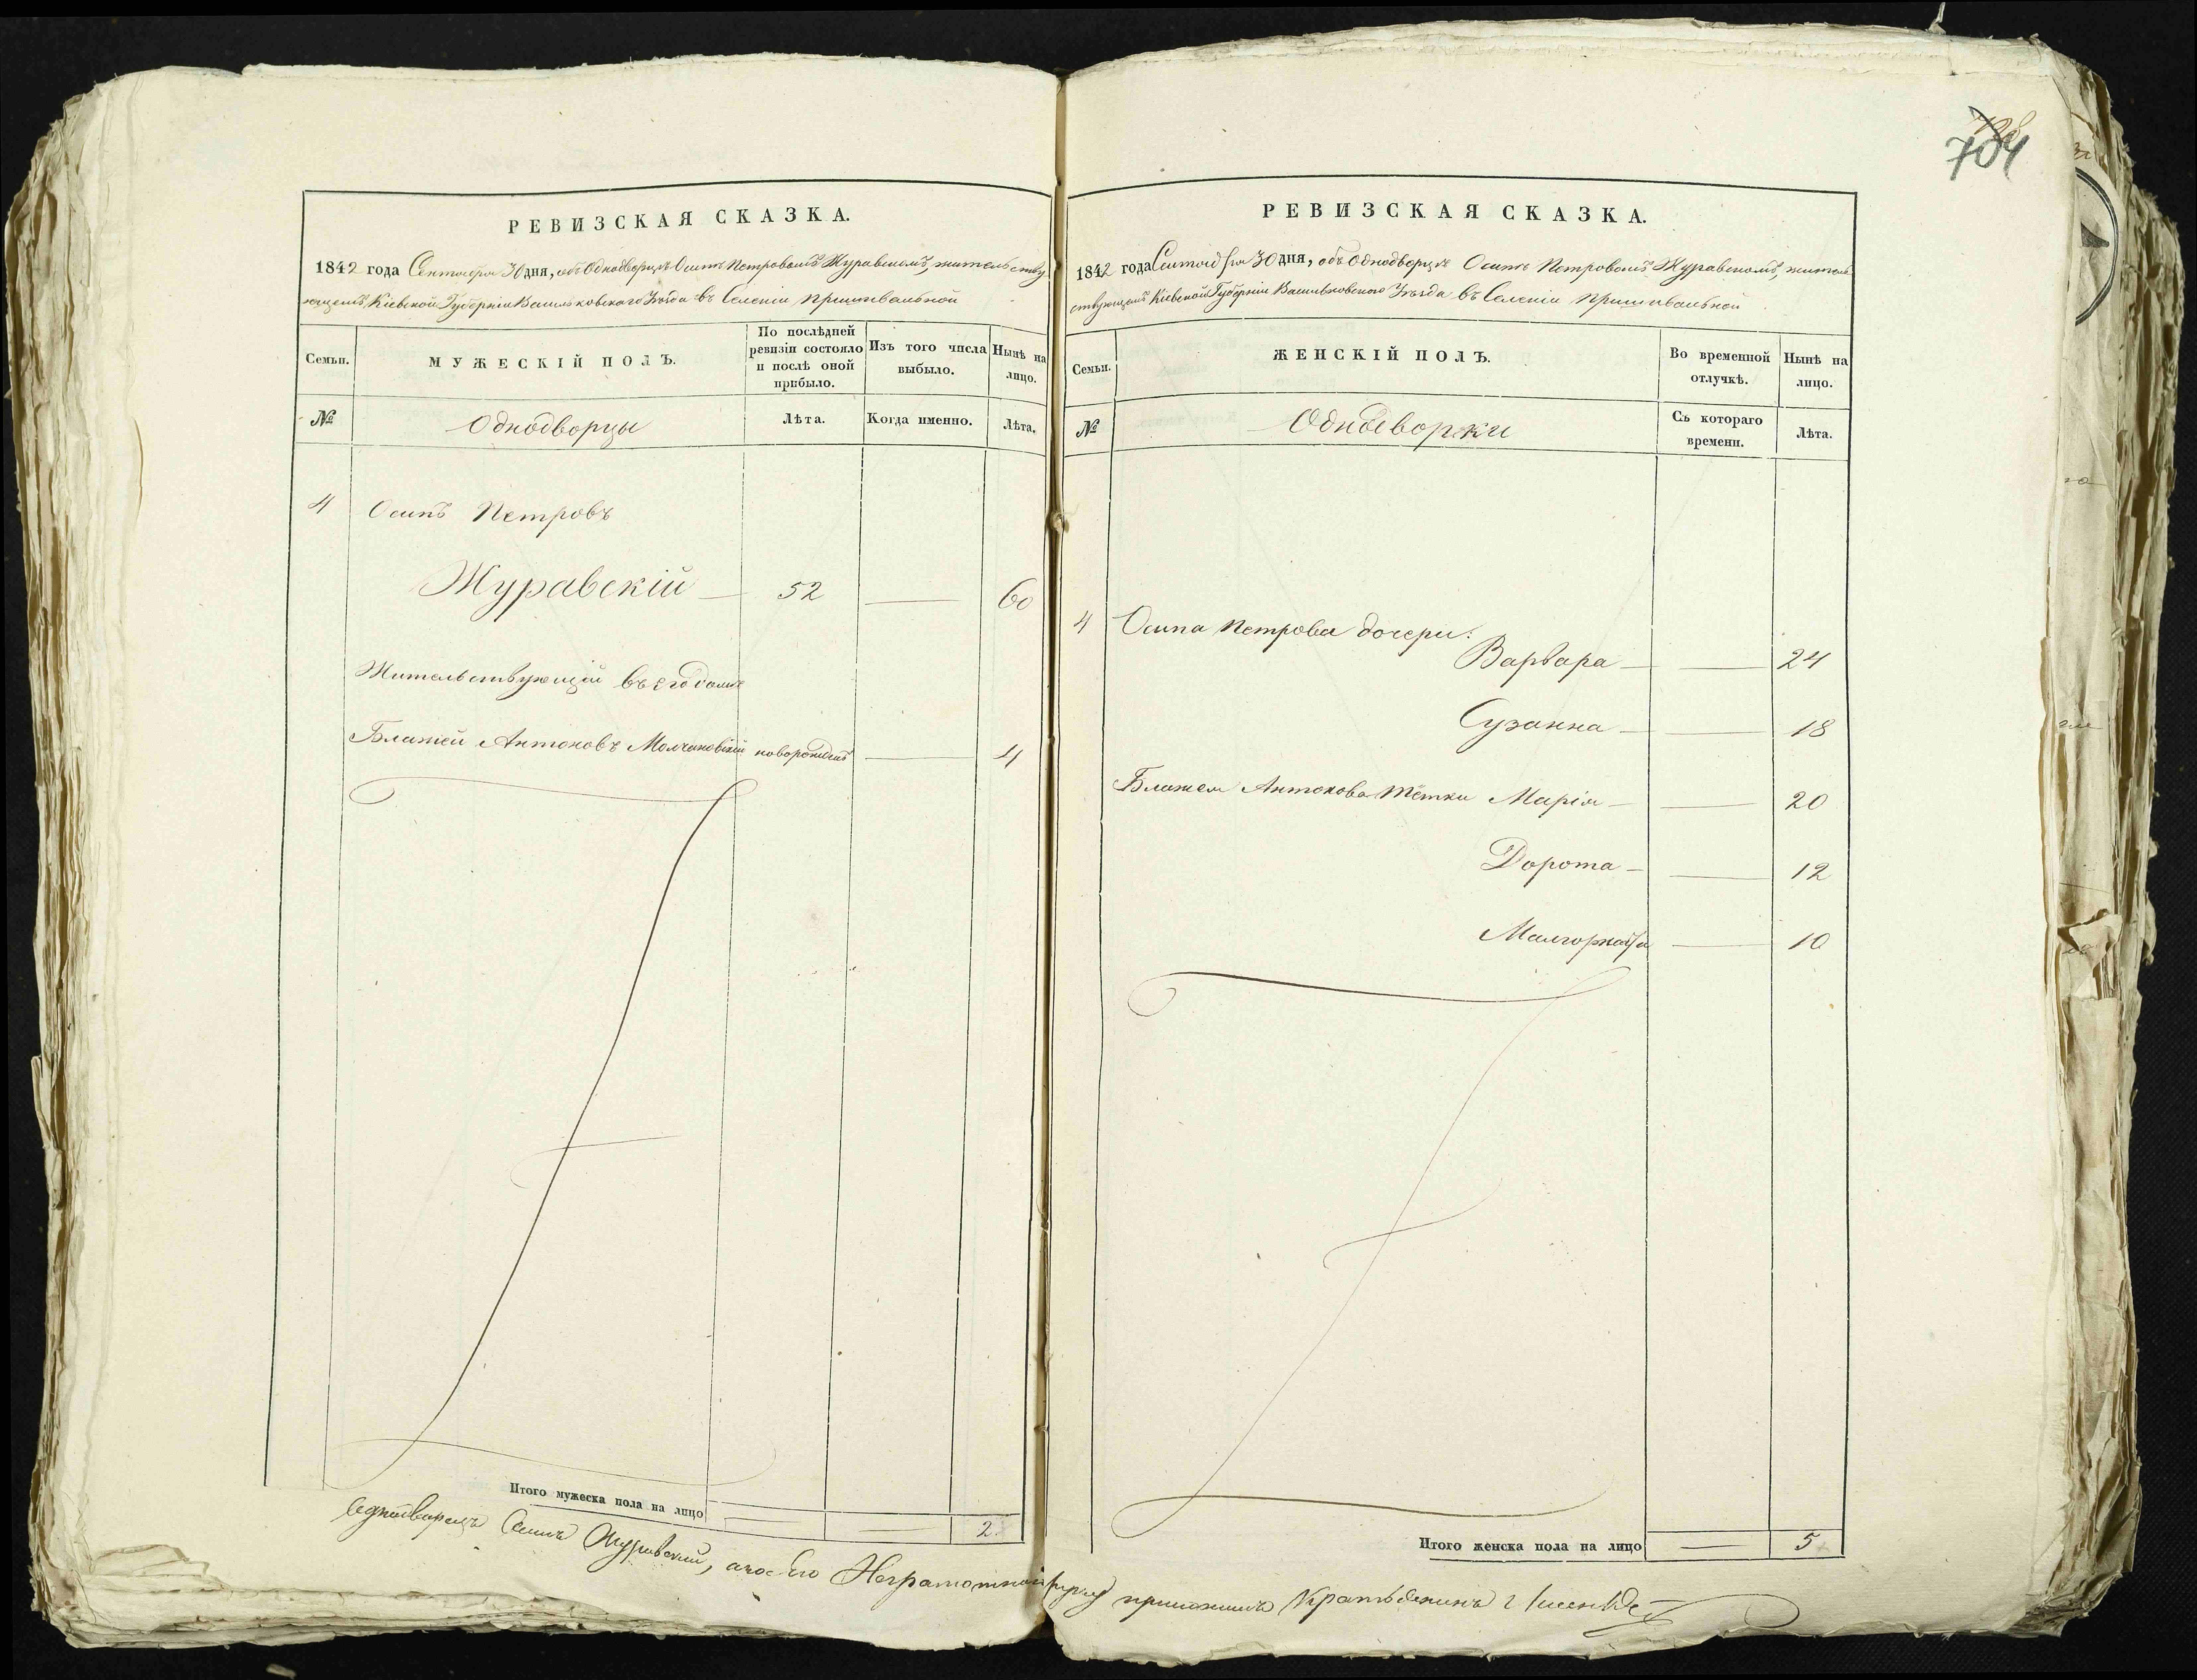 704
РЕВИЗСКАЯ СКАЗКА.
1842 года Сентября 30 дня, объ Однодворцѣ Осипѣ Петровомъ Журавскомъ, жительству
ющемъ Кіевской Губерніи Васильковскаго Уѣзда въ Селеніи Пришивальной
Семьи.
МУЖЕСКІЙ ПОЛЪ.
По послѣдней ревизіи состояло и послѣ оной прибыло.
Изъ того числа выбыло.
Нынѣ на лицо.
№
Однодворцы
Лѣта.
Когда именно.
Лѣта.
4 Осипъ Петровъ
Журавскій — 52 — 60
Жительствующій въ его домѣ
Блажей Антоновъ Молчановскій новорожден — 4
Итого мужеска пола на лицо — — 2
РЕВИЗСКАЯ СКАЗКА.
1842 года Сентября 30 дня, объ Однодворцѣ Осипѣ Петровомъ Журавскомъ, житель
ствующемъ Кіевской Губерніи Васильковскаго Уѣзда въ Селеніи Пришивальной
Семьи.
ЖЕНСКІЙ ПОЛЪ.
Во временной отлучкѣ.
Нынѣ на лицо.
№
Однодворки
Съ котораго времени.
Лѣта.
4 Осипа Петрова дочери:
Варвара — — 24
Сузанна — — 18
Блажея Антонова тётки Марія — — 20
Дорота — — 12
Малгоржата — 10
Итого женска пола на лицо — 5
Однодворецъ Осипъ Журавский, а за его Неграмотной приложилъ